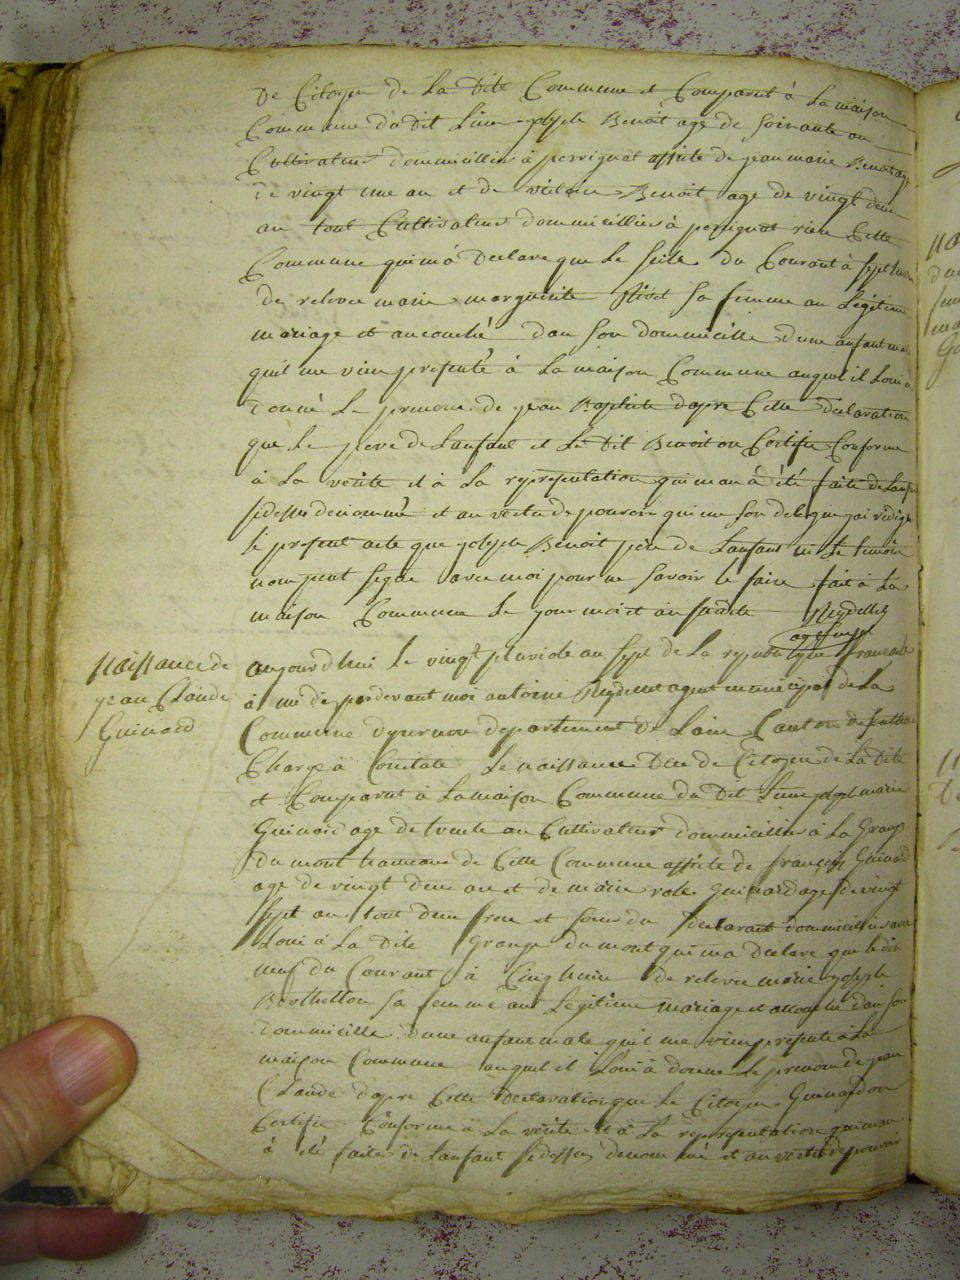 De Citoyen de La Dite Commune et Comparut à La maison
Commune du dit Lieu joseph Benoit age de soixante an
Cultivateur dommicillier à perrignat assite de jean marie Benoit age
de vingt une an et de Benoit age de vingt deux
an tout Cultivateur dommicillier à perrignat Cette
Commune qui m'a Declare que le seize du Courant à sept heure
de relevee marie marguerite sa femme an Legitime
mariage et ancouché dan son dommicille d'une anfant ma
quil me vien presenté à La maison Commune auquel il Loui à
donné Le prenom de jean Baptiste dapre Cette déclaration
que Le pere de Lanfant et Le Dit Benoit on Certifie Conforme
à La vérité et à La representation qui man à été faite de Lanfan
sidessu denommé et an vertu de pouvoir qui me son delegue jai rédigé
le present acte que joseph Benoit pere de Lanfant ni Le temoin
nom peut signe avec moi pour ne savoir le faire fait à La
maison Commune Le jour moi et an susdite
agent
Naissance de
jean Claude
Guinard
aujourd'hui le vingt pluviose an sept de La republique francaise
à mi di pardevant moi antoine agent municipal de La
Commune departement de Lain Canton de
Charge à Constate Le naissance Due de Citoyen de La Dite
et Comparut à La maison Commune du Dit Lieu joseph marie
Guinard age de trente an Cultivateur dommicillier à La Grange
du mont de Cette Commune assite de françois Guinard
age de vingt deux an et de marie rose Guinard age de vingt
sept an tout deux frere et soeur du declarant dommicillier avec
Loui à La Dite Grange du mont qui m'a Declare que le dix
neuf du Courant à Cinq heure de relevee marie josephe
Berthetton sa femme ant Legitime mariage et accouche dan son
dommicille dune anfant male quil me vien presente à La
maison Commune auquel il Loui à donne Le prenom de jean
Claude dapre Cette Declaration que Le Citoyen Guinard on
Certifie Conforme à La vérité et à La representation qui man
à été faite de Lanfant sidessu denommé et an vertu de pouvoir